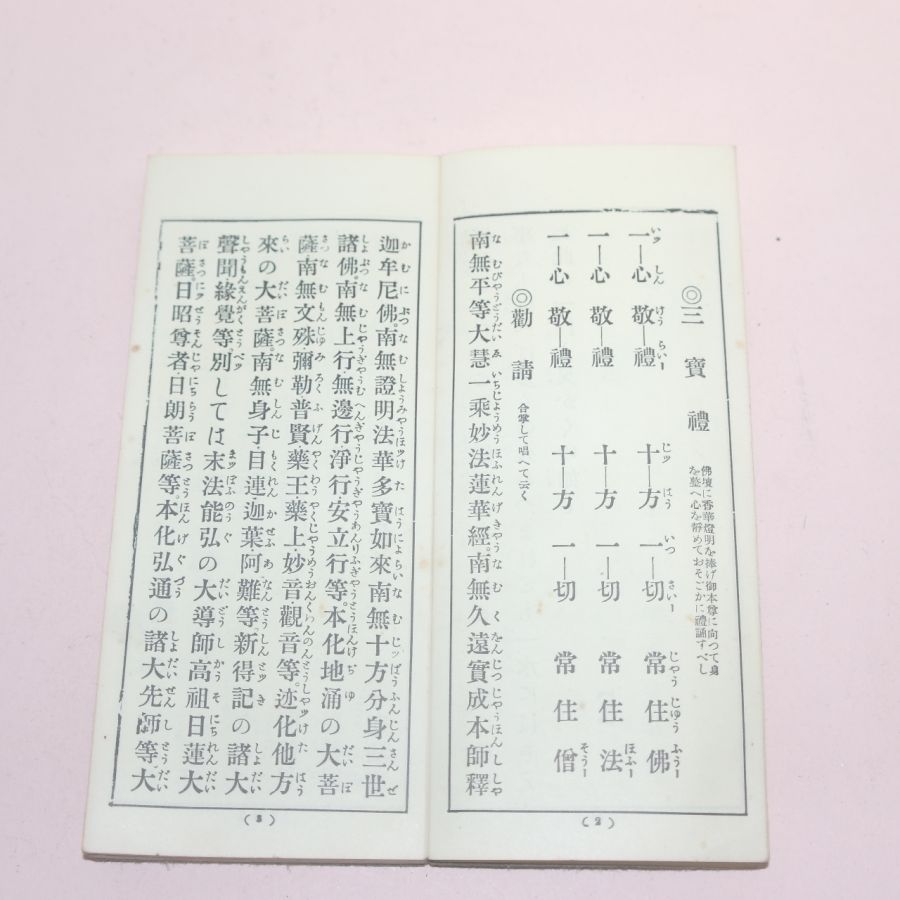 ◎三寶禮
佛壇に香華燈明を捧げ御本尊に向つて身
を整へ心を靜めておそごかに禮誦すべし
一心敬禮 十方一切 常住佛
一心敬禮 十方一切 常住法
一心敬禮 十方一切 常住僧
◎勸請 合掌して唱へて云く
南無平等大慧一乘妙法蓮華經。南無久遠實成本師釋
(2)
迦牟尼佛。南無證明法華多寶如來南無十方分身三世
諸佛。南無上行・無邊行・淨行安立行等。本化地涌の大菩
薩南無文殊・彌勒普賢・藥王藥上・妙音觀音等。迹化他方
來の大菩薩。南無身子・目連迦葉・阿難等。新得記の諸大
聲聞緣覺等別しては末法能弘の大導師高祖日蓮大
菩薩。日昭尊者・日朗菩薩等。本化弘通の諸大先師等大
(3)